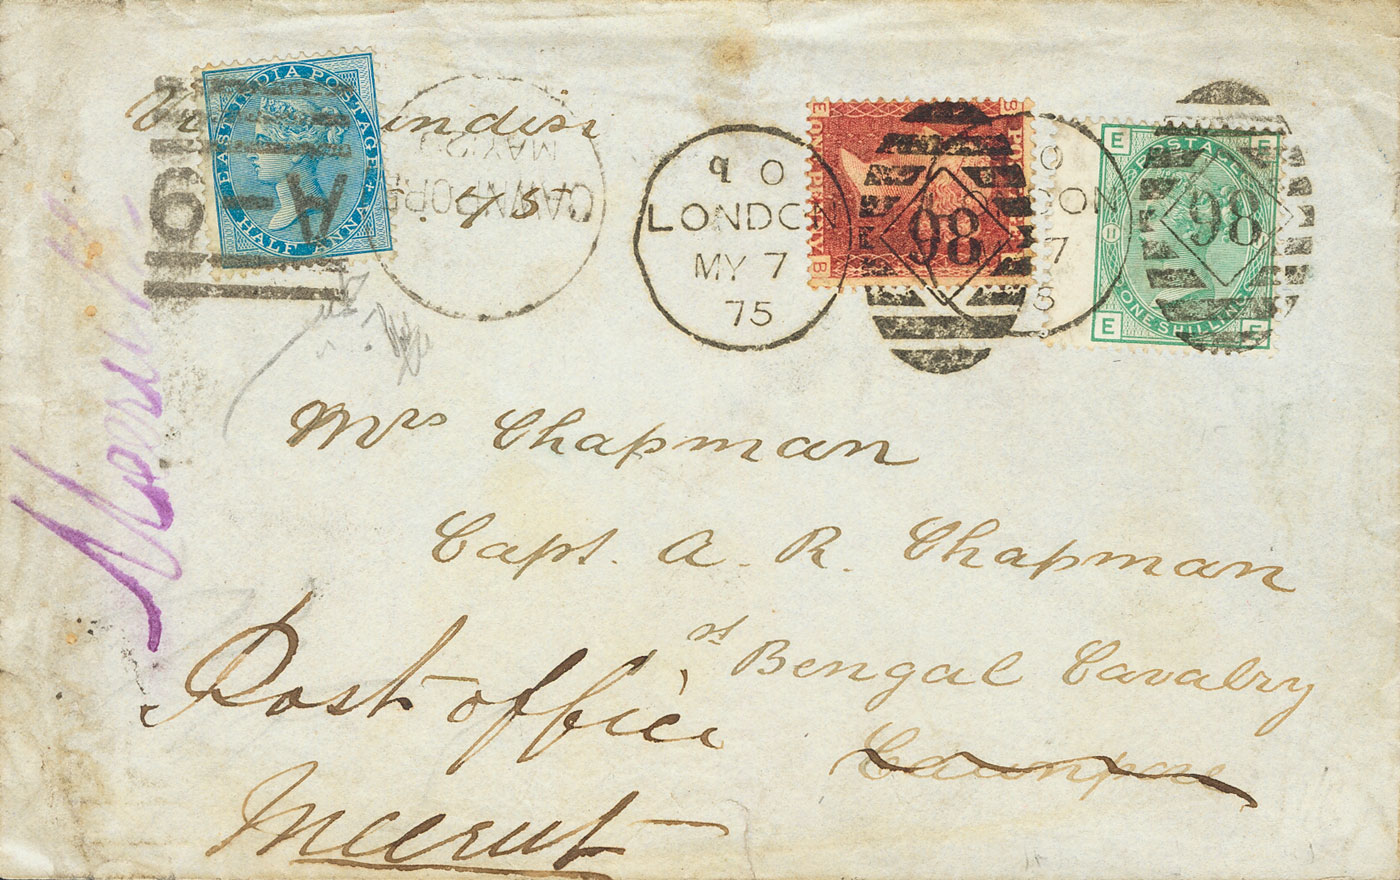 EAST INDIA POSTAGE
HALF ANNA
CAWNPORE
MAY 21
9 0
LONDON
MY 7
75
98
98
E
B
ONE PENNY
B
POSTAGE
ONE SHILLING
E
E
E
E
11
Mrs Chapman
Capt. A. R. Chapman
1st Bengal Cavalry
Cawnpore
Post office
Meerut